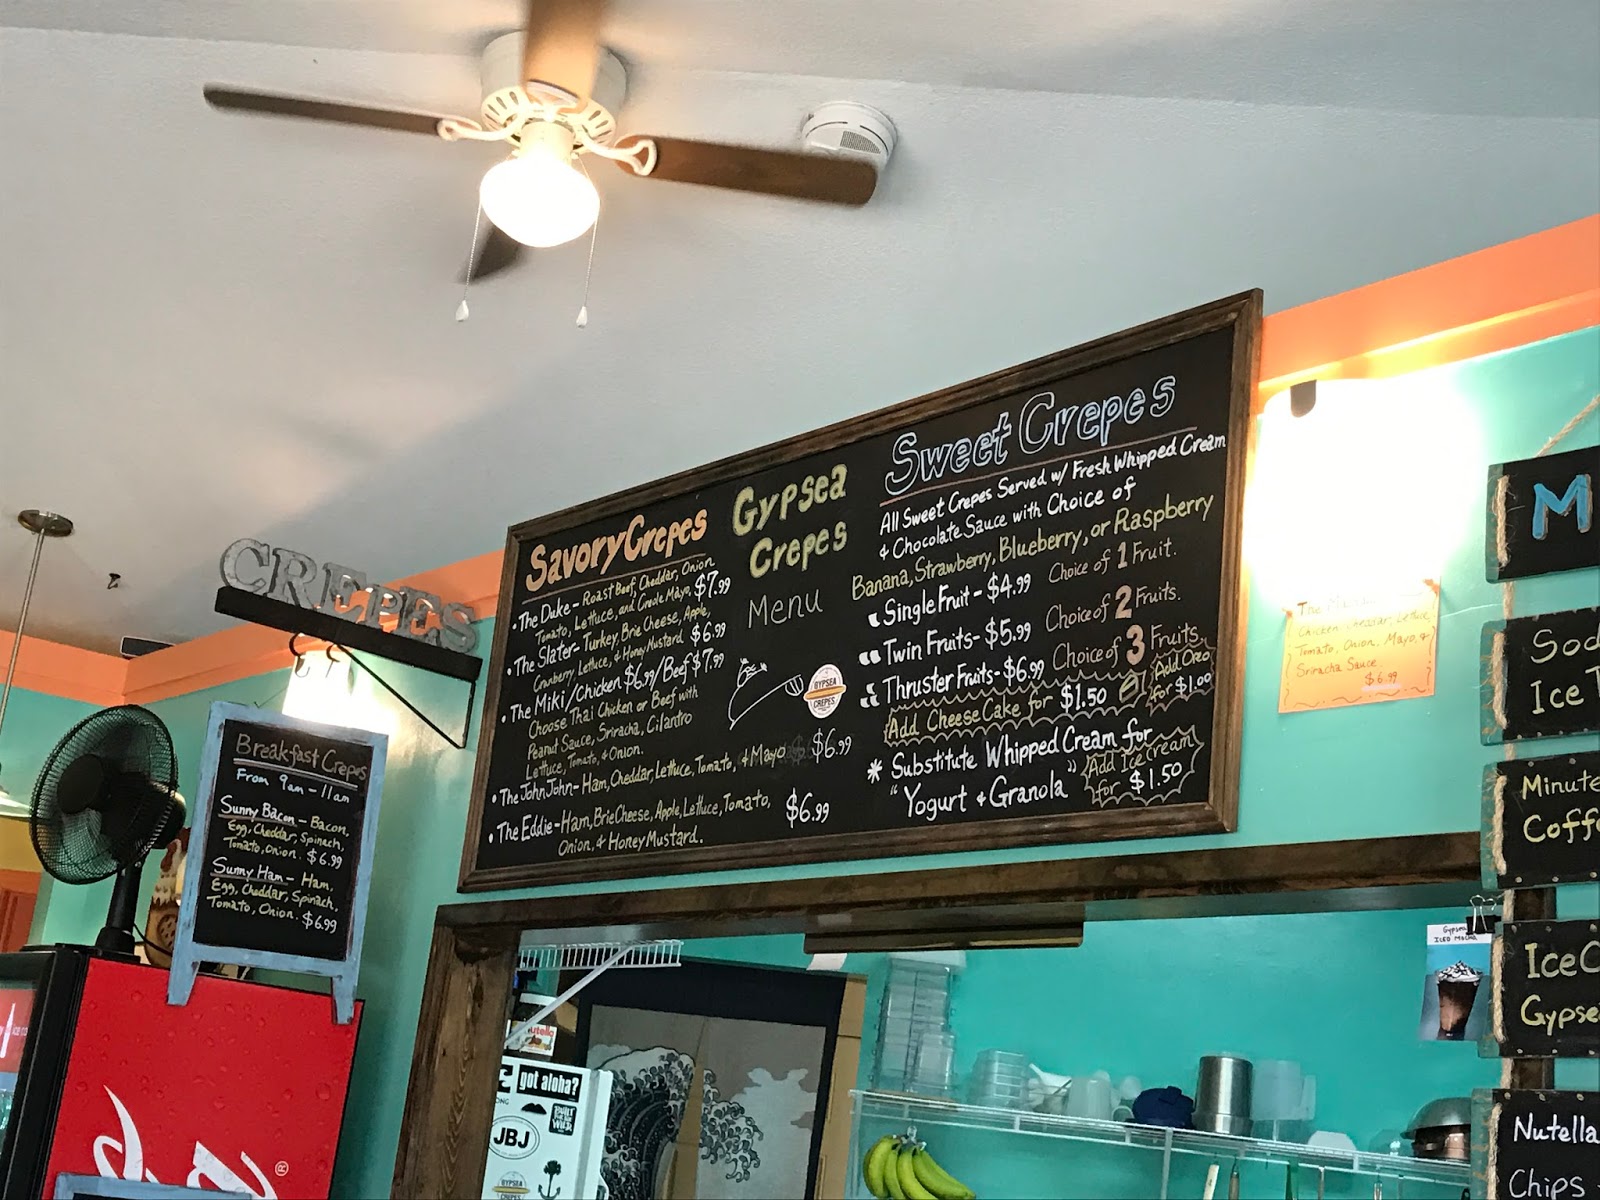 CREPES
Breakfast Crepes
From 9am - 11am
Sunny Bacon - Bacon,
Egg, Cheddar, Spinach,
Tomato, Onion. $6.99
Sunny Ham - Ham,
Egg, Cheddar, Spinach,
Tomato, Onion. $6.99
Savory Crepes
• The Duke - Roast Beef, Cheddar, Onion
Tomato, Lettuce, and Creole Mayo, $7.99
• The Slater - Turkey, Brie Cheese, Apple,
Cranberry, Lettuce, & Honey Mustard $6.99
• The Miki / Chicken $6.99 / Beef $7.99
Choose Thai Chicken or Beef with
Peanut Sauce, Sriracha, Cilantro
Lettuce, Tomato, & Onion.
• The John John - Ham, Cheddar, Lettuce, Tomato, & Mayo $6.99
• The Eddie - Ham, Brie Cheese, Apple, Lettuce, Tomato,
Onion, & Honey Mustard. $6.99
Gypsea
Crepes
Menu
GYPSEA
CREPES
Sweet Crepes
All Sweet Crepes Served w/ Fresh Whipped Cream
& Chocolate Sauce with Choice of
Banana, Strawberry, Blueberry, or Raspberry
Single Fruit - $4.99 Choice of 1 Fruit.
Twin Fruits - $5.99 Choice of 2 Fruits.
Thruster Fruits - $6.99 Choice of 3 Fruits.
Add Cheese Cake for $1.50
Add Oreo
for $1.00
* Substitute Whipped Cream for
"Yogurt & Granola"
Add Ice cream
for $1.50
The
Chicken, Cheddar, Lettuce,
Tomato, Onion, Mayo, &
Sriracha Sauce.
$6.99
M
Sod
Ice T
Minute
Coffe
Ice C
Gypse
Nutella
Chips
Gypsea
ICED MOCHA
nutella
got aloha?
JBJ
GYPSEA
CREPES
®